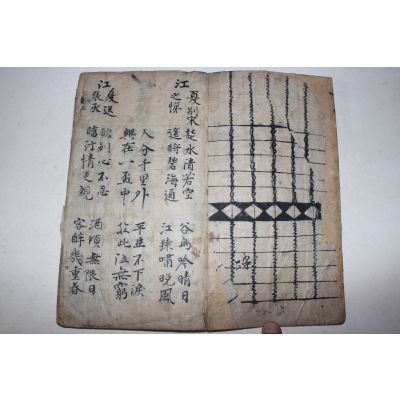 江夏別宋之悌
楚水清若空 谷鳥吟晴日
遙將碧海通 江猿嘯晚風
人分千里外 平生不下淚
興在一盃中 於此泣無窮
江夏送張丞
欲別心不忍 酒傾無限日
臨行情更親 客醉幾重春